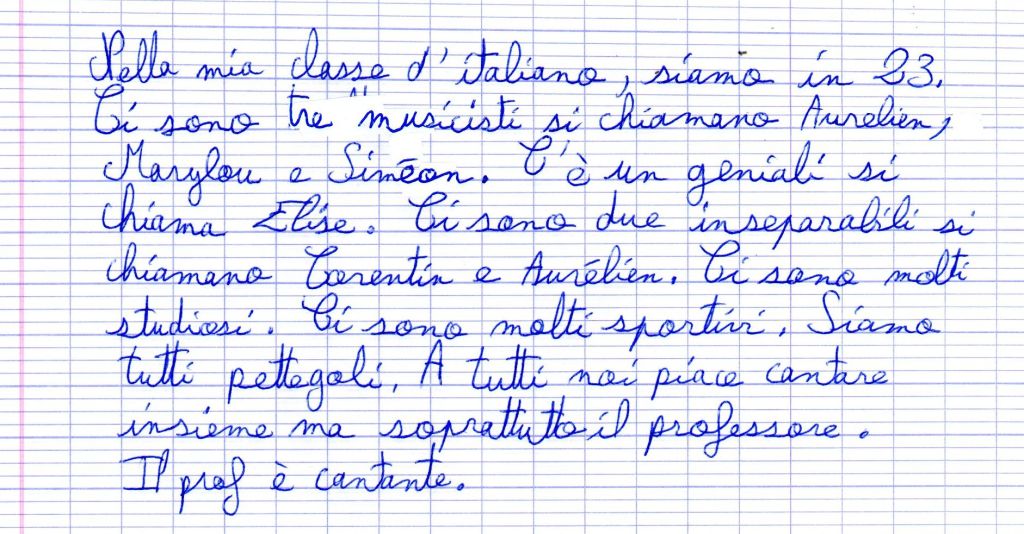 Nella mia classe d'italiano, siamo in 23.
Ci sono tre musicisti si chiamano Aurelien,
Marylou e Siméon. C'è un geniali si
chiama Elise. Ci sono due inseparabili si
chiamano Corentin e Aurélien. Ci sono molti
studiosi. Ci sono molti sportivi. Siamo
tutti pettegoli. A tutti noi piace cantare
insieme ma soprattutto il professore.
Il prof è cantante.